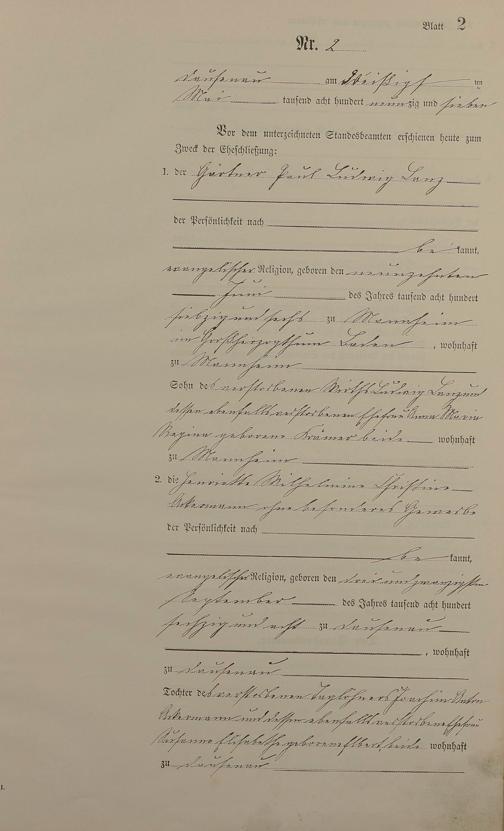 Blatt 2
Nr. 2
Dausenau am dreißigsten
Mai tausend acht hundert neunzig und sieben
Vor dem unterzeichneten Standesbeamten erschienen heute zum
Zweck der Eheschließung:
1. der Gärtner Paul Ludwig Lanz
der Persönlichkeit nach
be kannt,
evangelischer Religion, geboren den neunzehnten
Juni des Jahres tausend acht hundert
siebzig und sechs zu Mannheim
im Großherzogthum Baden, wohnhaft
zu Mannheim
Sohn des verstorbenen Wirths Ludwig Lanz und
dessen ebenfalls verstorbenen Ehefrau Anna Maria
Regina geborene Krämer beide wohnhaft
zu Mannheim
2. die Henriette Wilhelmine Christine
Ackermann ohne besonderes Gewerbe
der Persönlichkeit nach
be kannt,
evangelischer Religion, geboren den drei und zwanzigsten
September des Jahres tausend acht hundert
sechzig und acht zu Dausenau
, wohnhaft
zu Dausenau
Tochter des verstorbenen Taglöhners Joachim Anton
Ackermann und dessen ebenfalls verstorbene Ehefrau
Susanne Elisabethe geborene Elbert, beide wohnhaft
zu Dausenau